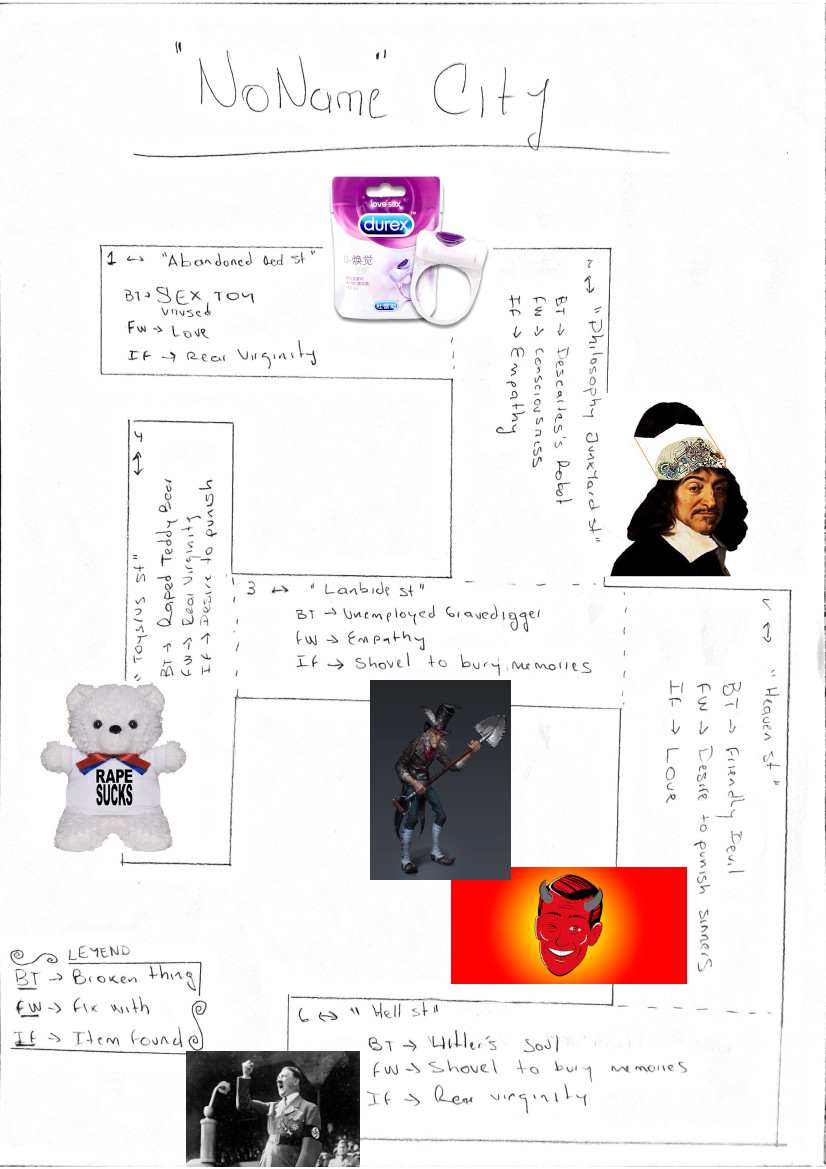 "NoName" City
love sex
durex
焕觉
1 ↔ "Abandoned Bed St"
BT → SEX TOY
unused
FW → Love
If → Rear Virginity
2 ↔ "Philosophy Junkyard St"
BT → Descartes's Robot
FW → Consciousness
If → Empathy
4 ↔ "Toysrus St"
BT → Raped Teddy Bear
FW → Rear Virginity
If → Desire to punish
RAPE
SUCKS
3 ↔ "Lanbide St"
BT → Unemployed Gravedigger
FW → Empathy
If → Shovel to bury memories
5 ↔ "Heaven St"
BT → Friendly Devil
FW → Desire to punish sinners
If → Love
LEYEND
BT → Broken thing
FW → Fix with
If → Item found
6 ↔ "Hell St"
BT → Hitler's Soul
FW → Shovel to bury memories
If → Rear virginity